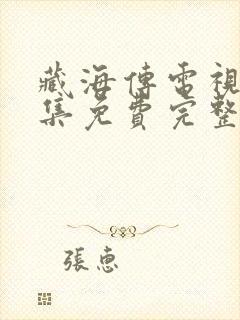 藏海傳電視
集免費完整
張惠